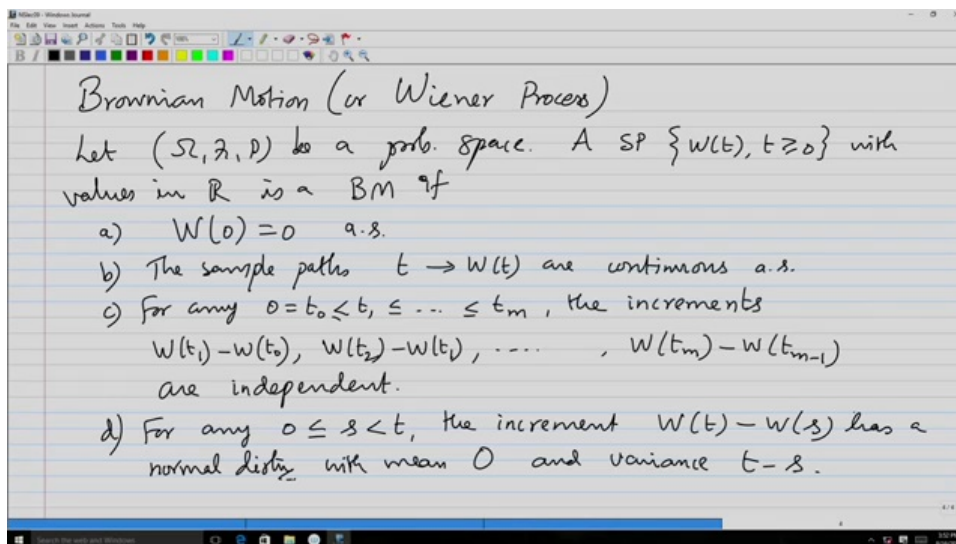 NSlec09 - Windows Journal
File Edit View Insert Actions Tools Help
Brownian Motion (or Wiener Process)
Let (Ω, ℱ, P) be a prob. space. A SP {W(t), t ≥ 0} with
values in ℝ is a BM if
a) W(0) = 0 a.s.
b) The sample paths t → W(t) are continuous a.s.
c) For any 0 = t₀ ≤ t₁ ≤ ... ≤ tₘ, the increments
W(t₁) – W(t₀), W(t₂) – W(t₁), ...., W(tₘ) – W(tₘ₋₁)
are independent.
d) For any 0 ≤ s < t, the increment W(t) – W(s) has a
normal distn with mean 0 and variance t – s.
4/4
Search the web and Windows
3:52 PM